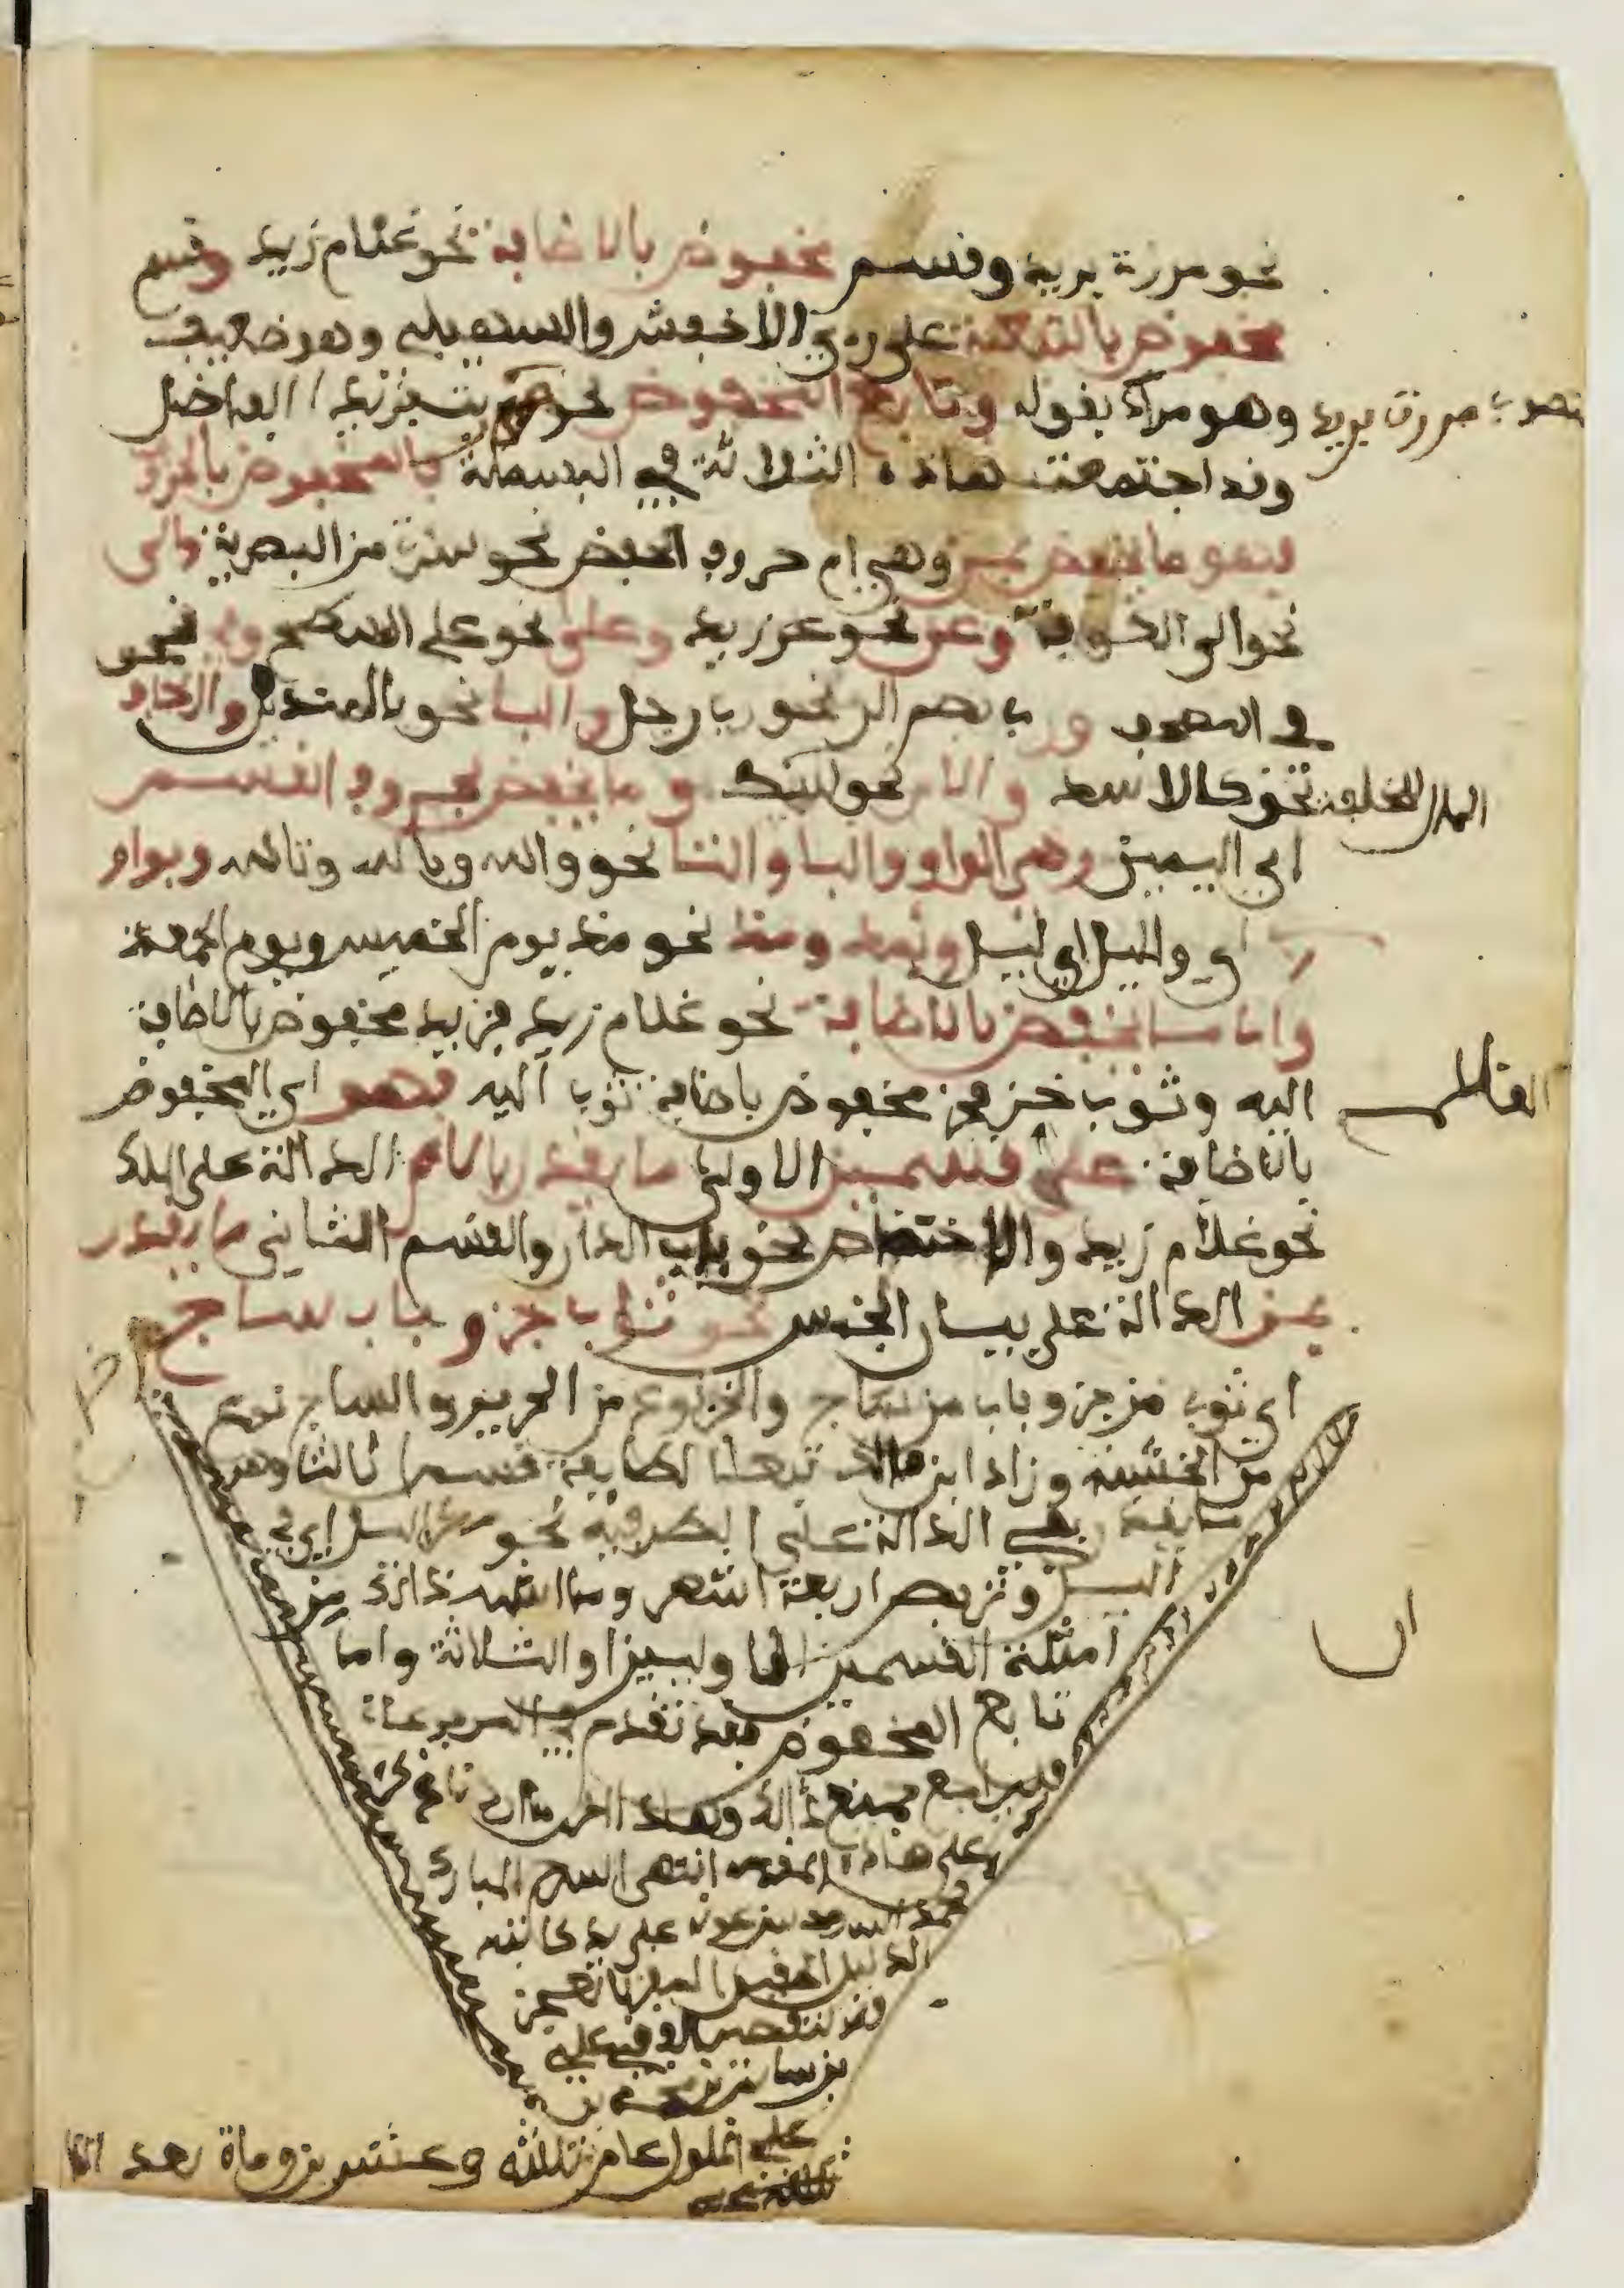 نحو مررت بزيد وقسم مخفوض بالاضافة نحو غلام زيد وقسم
مخفوض بالتبعية على رءي الاخفش والسهيلي وهو ضعيف
وهو مراد بقوله وتابع المخفوض نحو مررت بزيد الفاضل
وقد اجتمعت هاذه الثلاثة في البسملة فالمخفوض بالحرف
فهو ما يخفض بمن وهي ام حروف الخفض نحو سرت من البصرة والى
نحو الى الكوفة وعن نحو عن زيد وعلى نحو على السطح وفي نحو
في المصحف ورب بضم الر نحو رب رجل والبا نحو بالمنديل والكاف
نحو كالاسد واللام نحو لزيد وما يخفض بحروف القسم
اي اليمين وهي الواو والبا والتا نحو والله وبالله وتالله وبواو
رب اي وليل اي ليل وبمذ ومنذ نحو مذ يوم الخميس ويوم الجمعة
واما ما يخفض بالاضافة نحو غلام زيد فزيد مخفوض بالاضافة
اليه وثوب خز فخز مخفوض باضافة ثوب اليه فهو اي المخفوض
بالاضافة على قسمين الاولى ما يقدر باللام الدالة على الملك
نحو غلام زيد والاختصاص نحو باب الدار والقسم الثاني ما يقدر
بمن الدالة على بيان الجنس نحو ثوب خز وباب ساج
اي ثوب من خز وباب من ساج والخز نوع من الحرير والساج نوع
من الخشب وزاد ابن مالك تبعا لطايفة قسما ثالثا وهو
ما يقدر بفي الدالة على الظرفية نحو مكر اليل اي في
اليل وتربص اربعة اشهر وما اشبه ذالك من
امثلة القسمين الاولين او الثلاثة واما
تابع المخفوض فقد تقدم في المرفوعات
فليراجع جميع ذالك وهاذا اخر ما اردنا ذكره
على هاذه المقدمة انتهى المبارك
بحمد الله وحسن عونه على يد كاتبه
الذليل الحقير
علي
عام ثلاثة وعشرين وماة بعد الالف